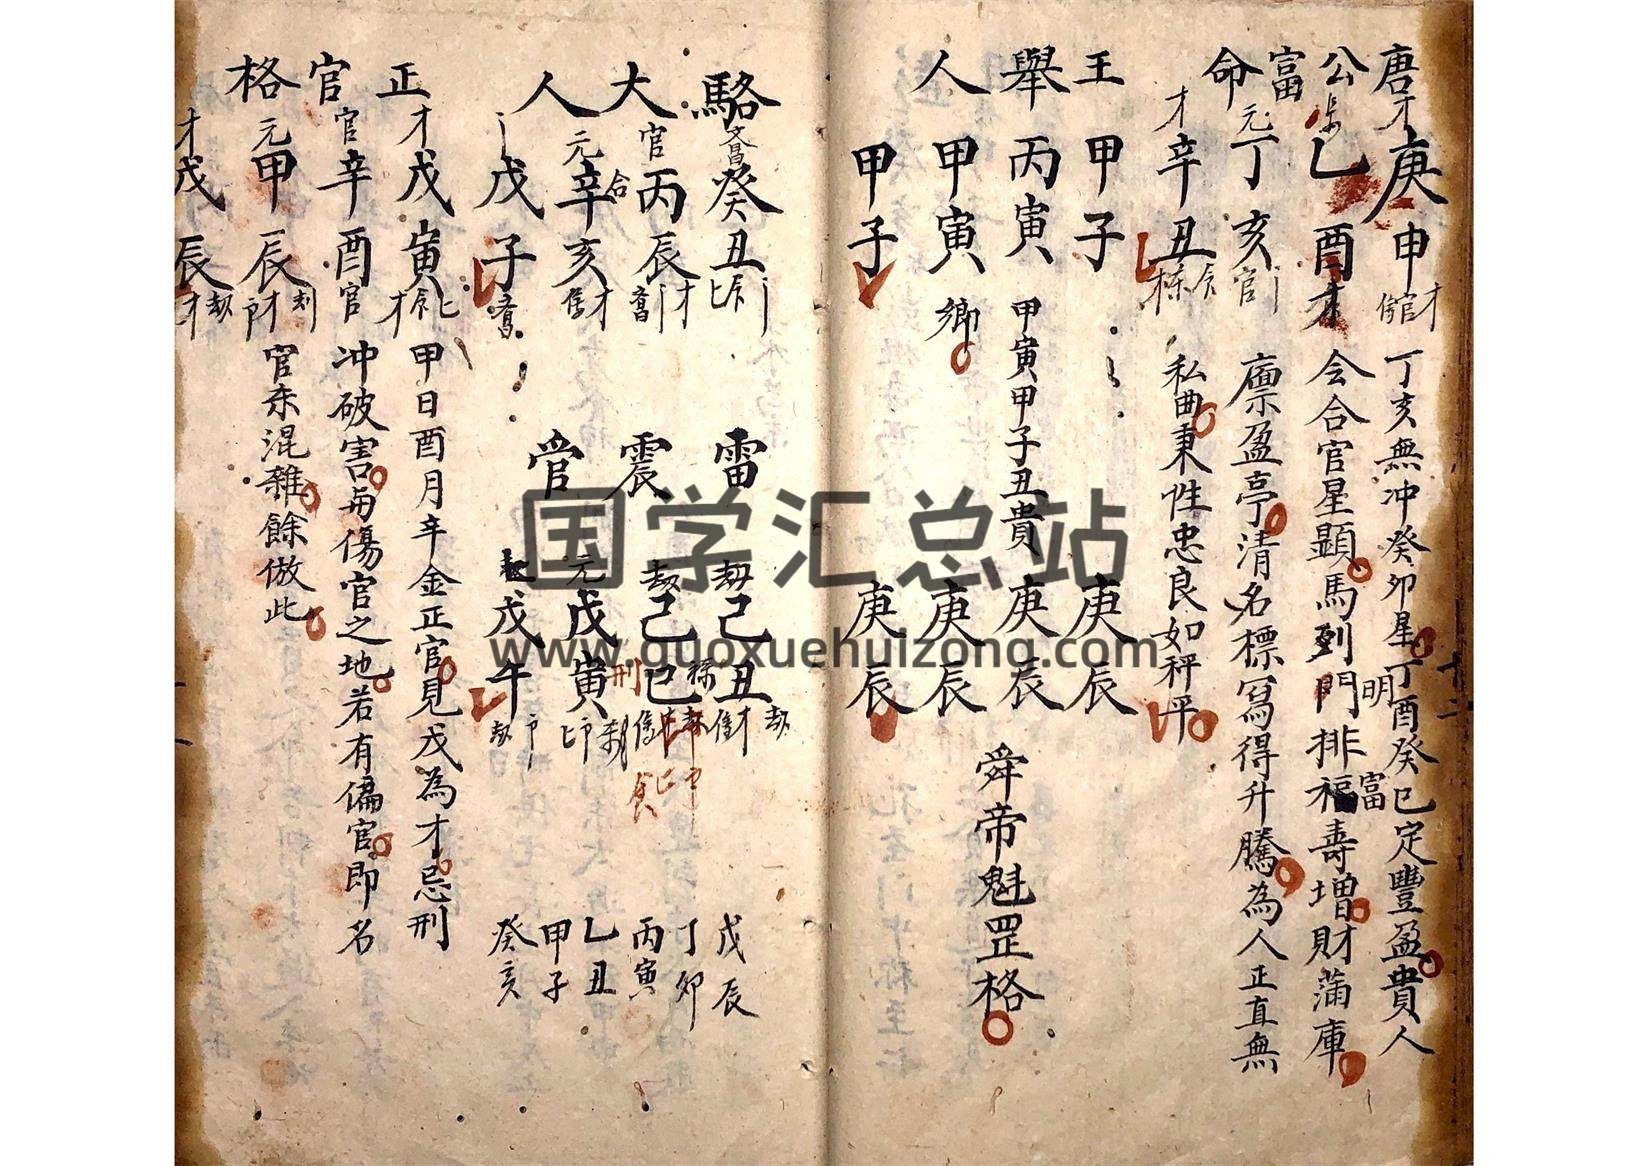 唐公富命
才庚申才
乙酉才
元丁亥官
才辛丑
丁亥無冲癸卯星丁酉癸巳定豐盈貴人
会合官星顯馬列門排福寿增財蒲庫
明
富
廪盈亭清名標寫得升騰為人正直無
私曲秉性忠良如秤平
王舉人
甲子
丙寅
甲寅
甲子
甲寅甲子丑貴
鄉
庚辰
庚辰
庚辰
庚辰
舜帝魁罡格
駱大人
文昌癸丑
官丙辰
合
元辛亥
戊子
雷震管
劫己丑
劫己巳
元戊寅
戊午
刑
食
戊辰
丁卯
丙寅
乙丑
甲子
癸亥
正官格
才戊寅
官辛酉官
元甲辰
才戊辰
甲日酉月辛金正官見戊為才忌刑
冲破害与傷官之地若有偏官即名
官杀混雜餘倣此
十二
国学汇总站
www.guoxuehuizong.com